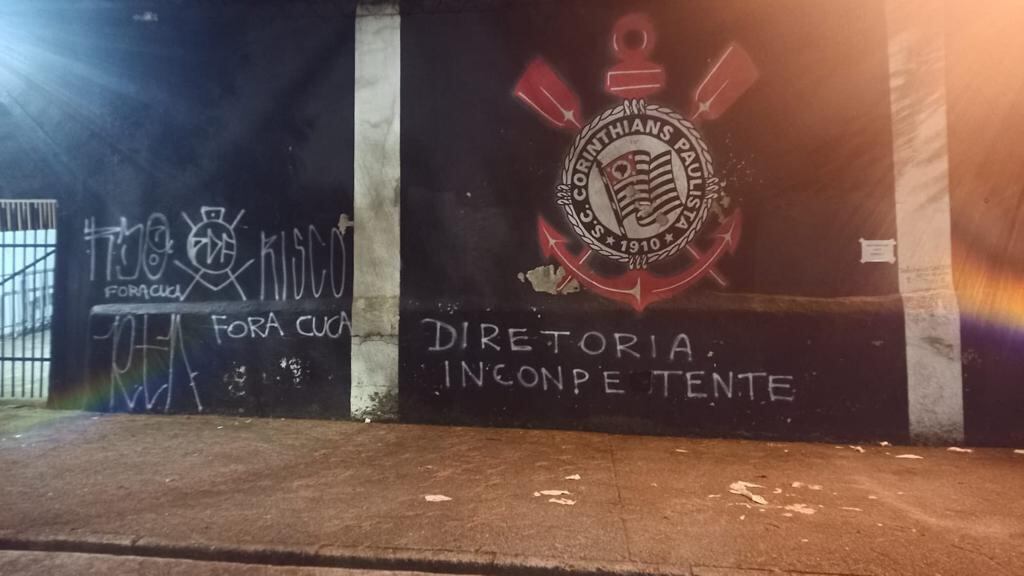 S.C. CORINTHIANS PAULISTA
1910
RISCO
FORA CUCA
FORA CUCA
DIRETORIA
INCONPETENTE